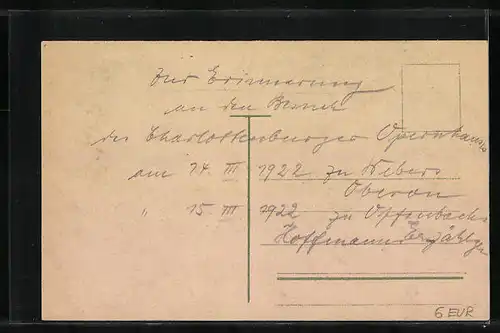 Zur Erinnerung
an den Besuch
des Charlottenburger Opernhauses
am 14. III 1922 zu Webers
Oberon
" 15 III 1922 zu Offenbachs
Hoffmanns Erzählgn
6 EUR